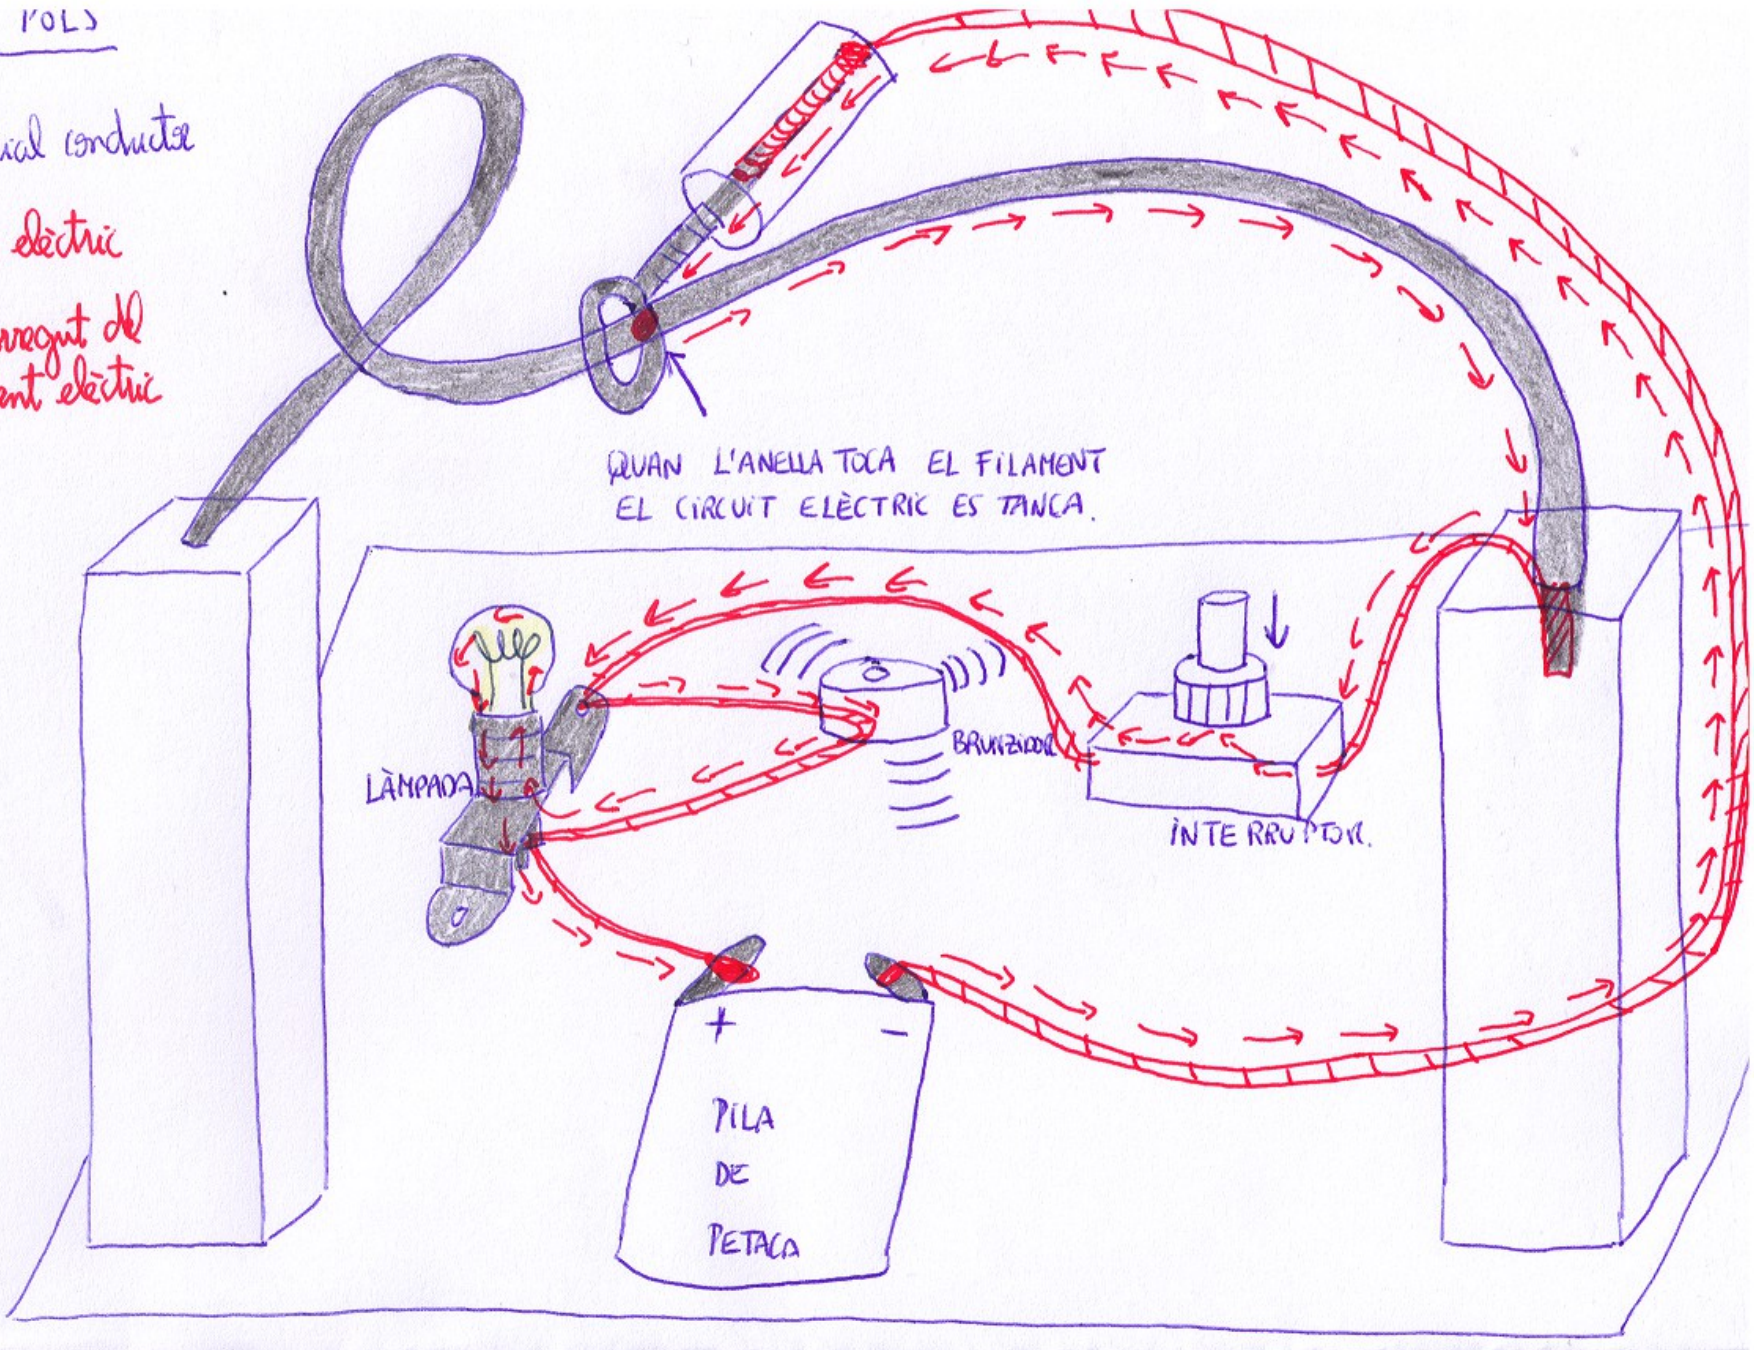 POLS
conductor
elèctric
elèctric
QUAN L'ANELLA TOCA EL FILAMENT
EL CIRCUIT ELÈCTRIC ES TANCA.
BRUNZIDOR
LÀMPADA
INTERRUPTOR.
+ -
PILA
DE
PETACA